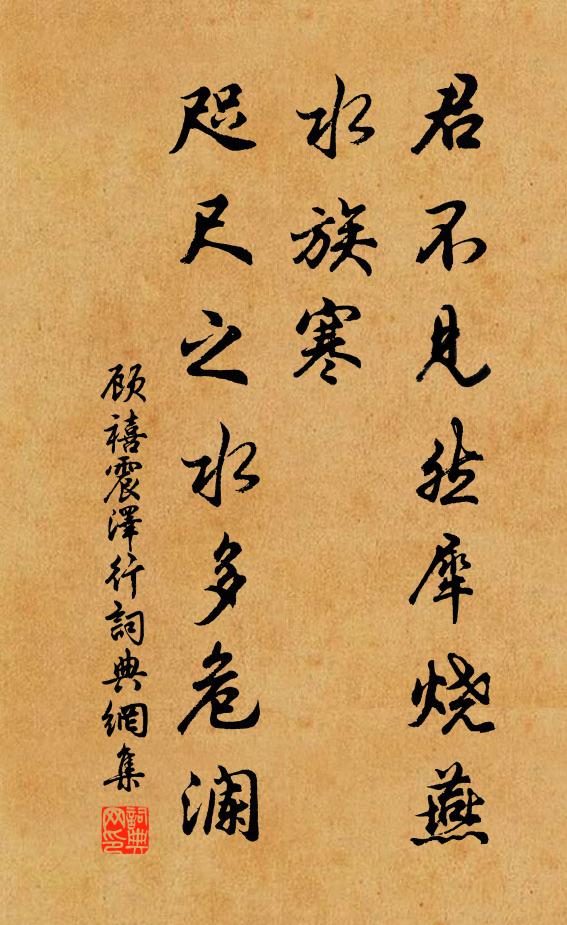 君不见然犀烧燕
水族寒
咫尺之水多危澜
顾禧震澤行詞典網集
詞典网印